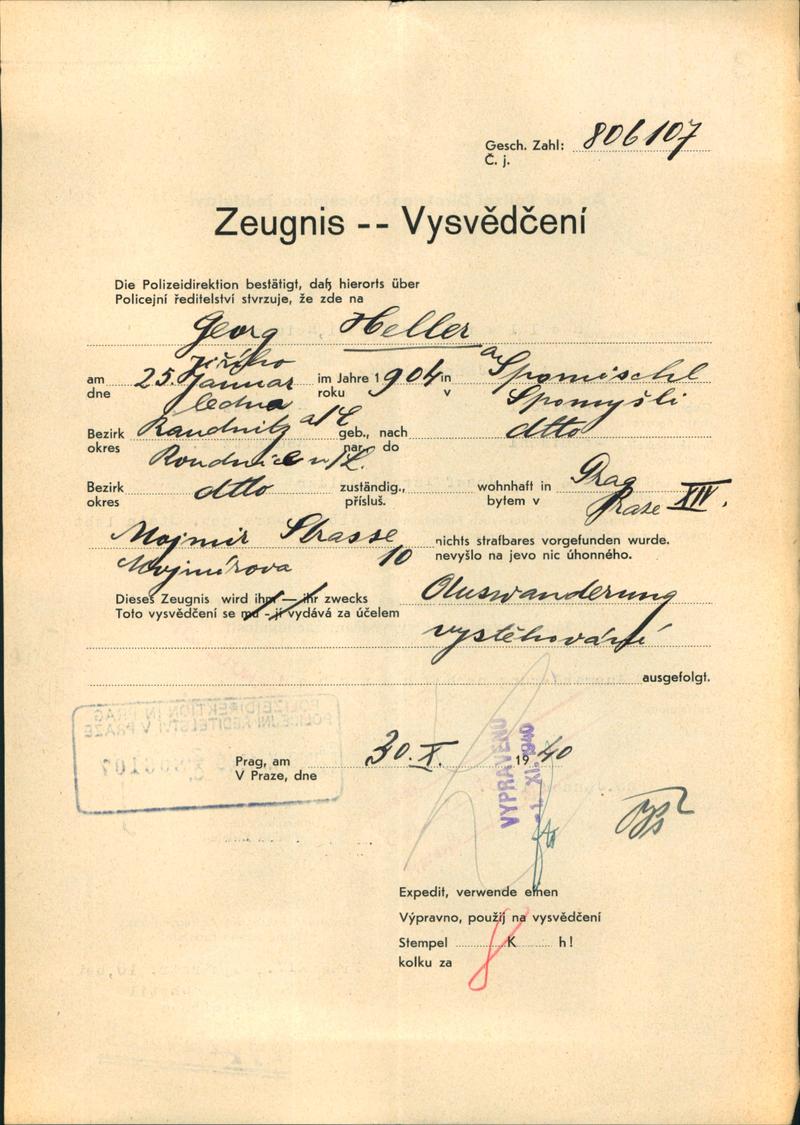 Gesch. Zahl: 806107
Č. j.
Zeugnis -- Vysvědčení
Die Polizeidirektion bestätigt, daß hierorts über
Policejní ředitelství stvrzuje, že zde na
Georg Heller
Jiřího
am 25. Januar im Jahre 1904 in Spomischl
dne ledna roku v Spomyšli
Bezirk Raudnitz a/E geb., nach dtto
okres Roudnice n/L. nar. do
Bezirk dtto zuständig., wohnhaft in Prag
okres přísluš. bytem v Praze XIV.
Mojmir Strasse nichts strafbares vorgefunden wurde.
Mojmírova 10 nevyšlo na jevo nic úhonného.
Dieses Zeugnis wird ihm — ihr zwecks Auswanderung
Toto vysvědčení se mu - jí vydává za účelem
vystěhování
ausgefolgt.
POLIZEIDIREKTION IN PRAG
POLICEJNÍ ŘEDITELSTVÍ V PRAZE
Prag, am 30. X. 1940
V Praze, dne
VYPRAVENO
-1. XI. 1940
Expedit, verwende einen
Výpravno, použij na vysvědčení
Stempel K h!
kolku za 8